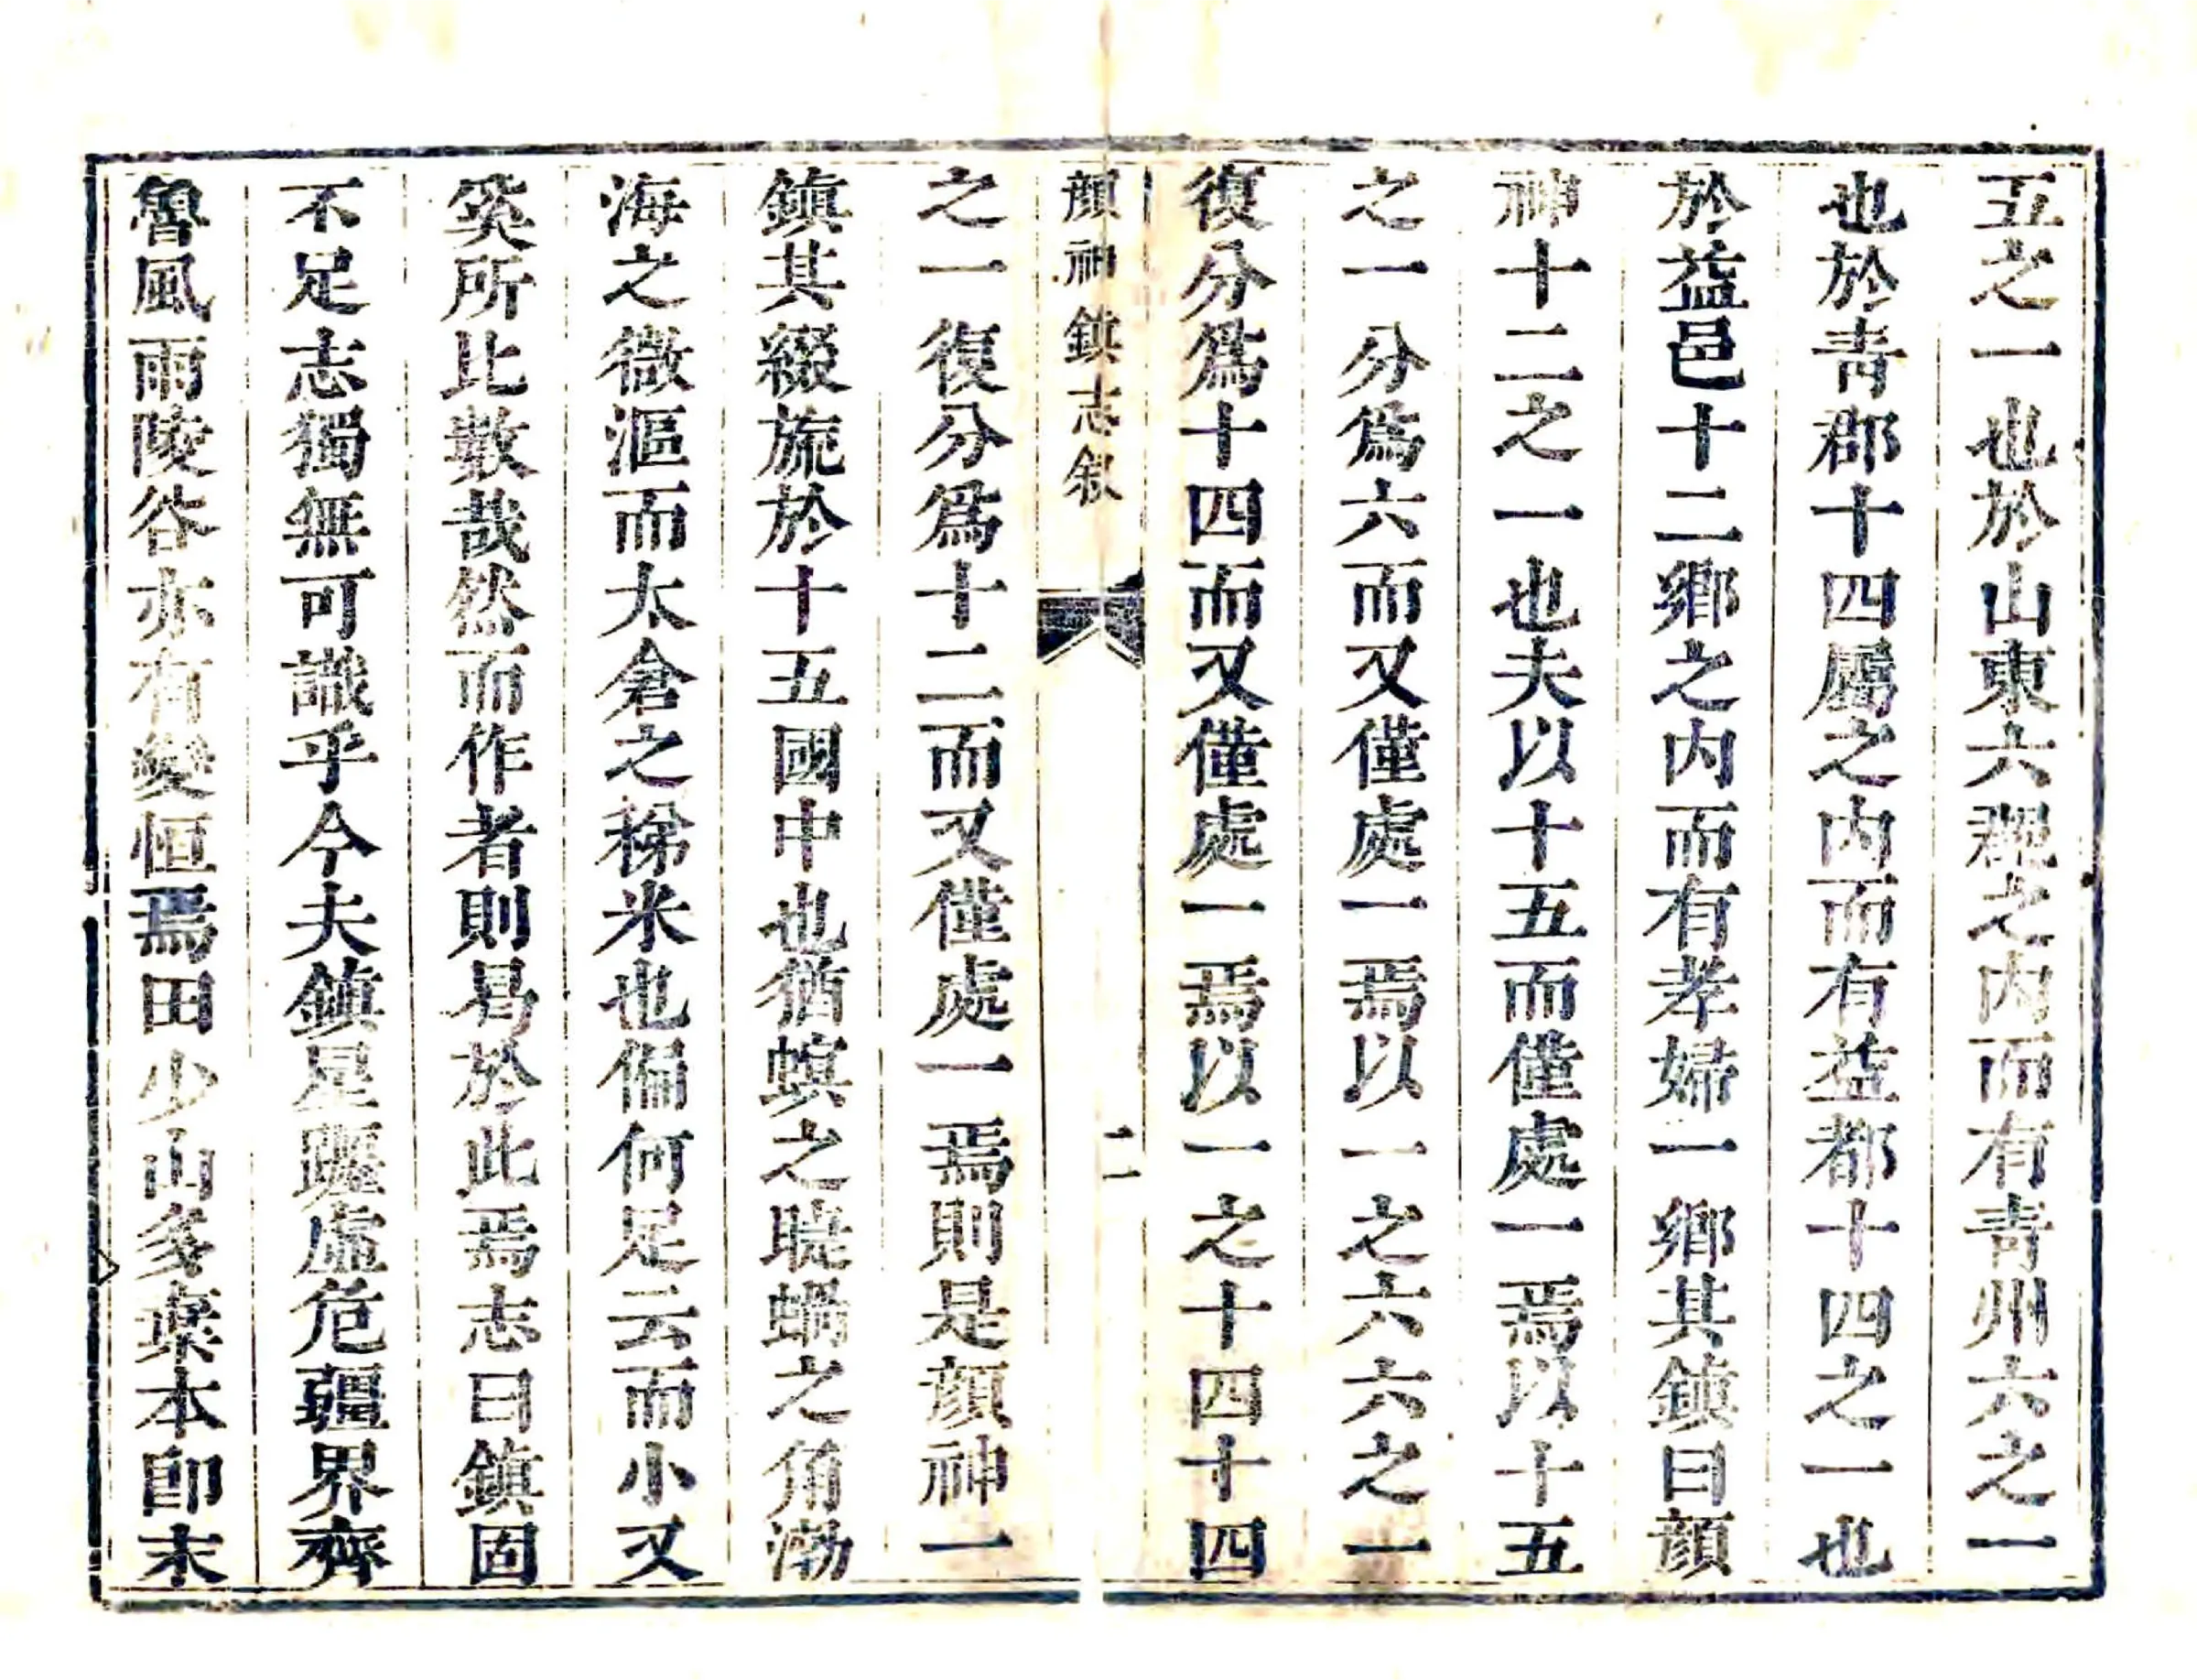 五之一也於山東六郡之内而有青州六之一
也於青郡十四屬之内而有益都十四之一也
於益邑十二鄉之内而有孝婦一鄉其鎮曰顔
神十二之一也夫以十五而僅處一焉以十五
之一分爲六而又僅處一焉以一之六六之一
復分爲十四而又僅處一焉以一之十四十四
顔神鎮志叙
二
之一復分爲十二而又僅處一焉則是顔神一
鎮其綴旒於十五國中也猶螟之睫蝸之角渤
海之微漚而太倉之稊米也偏何足云而小又
奚所比數哉然而作者則曷於此焉志曰鎮固
不足志獨無可識乎今夫鎮星躔虚危疆界齊
魯風雨陵谷亦有變恒焉田少山多棄本卽末